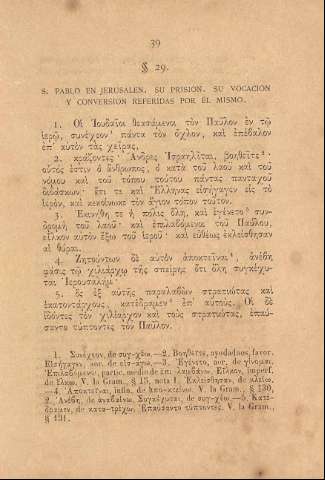 39
§ 29.
S. PABLO EN JERUSALEN. SU PRISION. SU VOCACION
Y CONVERSION REFERIDAS POR EL MISMO.
1. Οἱ Ἰουδαῖοι θεασάμενοι τὸν Παῦλον ἐν τῷ
ἱερῷ, συνέχεον¹ πάντα τὸν ὄχλον, καὶ ἐπέβαλον
ἐπ᾿ αὐτὸν τὰς χεῖρας,
2. κράζοντες· Ἄνδρες Ἰσραηλῖται, βοηθεῖτε²·
οὗτός ἐστιν ὁ ἄνθρωπος, ὁ κατὰ τοῦ λαοῦ καὶ τοῦ
νόμου καὶ τοῦ τόπου τούτου πάντας πανταχοῦ
διδάσκων· ἔτι τε καὶ Ἕλληνας εἰσήγαγεν εἰς τὸ
ἱερὸν, καὶ κεκοίνωκε τὸν ἅγιον τόπον τοῦτον.
3. Ἐκινήθη τε ἡ πόλις ὅλη, καὶ ἐγένετο³ συν-
δρομὴ τοῦ λαοῦ· καὶ ἐπιλαβόμενοι τοῦ Παύλου,
εἷλκον αὐτὸν ἔξω τοῦ ἱεροῦ· καὶ εὐθέως ἐκλείσθησαν
αἱ θύραι.
4. Ζητούντων δὲ αὐτὸν ἀποκτεῖναι⁴, ἀνέβη
φάσις τῷ χιλιάρχῳ τῆς σπείρης ὅτι ὅλη συγκέχυ-
ται Ἱερουσαλήμ·
5. ὃς ἐξ αὐτῆς παραλαβὼν στρατιώτας καὶ
ἑκατοντάρχους, κατέδραμεν⁵ ἐπ᾿ αὐτούς. Οἱ δὲ
ἰδόντες τὸν χιλίαρχον καὶ τοὺς στρατιώτας, ἐπαύ-
σαντο τύπτοντες τὸν Παῦλον.
1. Συνέχεον, de συγ-χέω.—2. Βοηθεῖτε, ayudadnos, favor.
Εἰσήγαγεν, aor. de εἰσ-αγω.—3. Ἐγένετο, aor. de γίνομαι.
Ἐπιλαβόμενοι, partic. medio de ἐπι-λαμβάνω. Εἷλκον, imperf.
de ἕλκω. V. la Gram., § 15, nota 1. Ἐκλείσθησαν, de κλείω.
—4. Ἀποκτεῖναι, infin. de ἀπο-κτείνω. V. la Gram., § 130,
2. Ἀνέβη, de ἀναβαίνω. Συγκέχυται, de συγ-χέω.—5. Κατέ-
δραμεν, de κατα-τρέχω. Ἐπαύσαντο τύπτοντες. V. la Gram.,
§ 131.